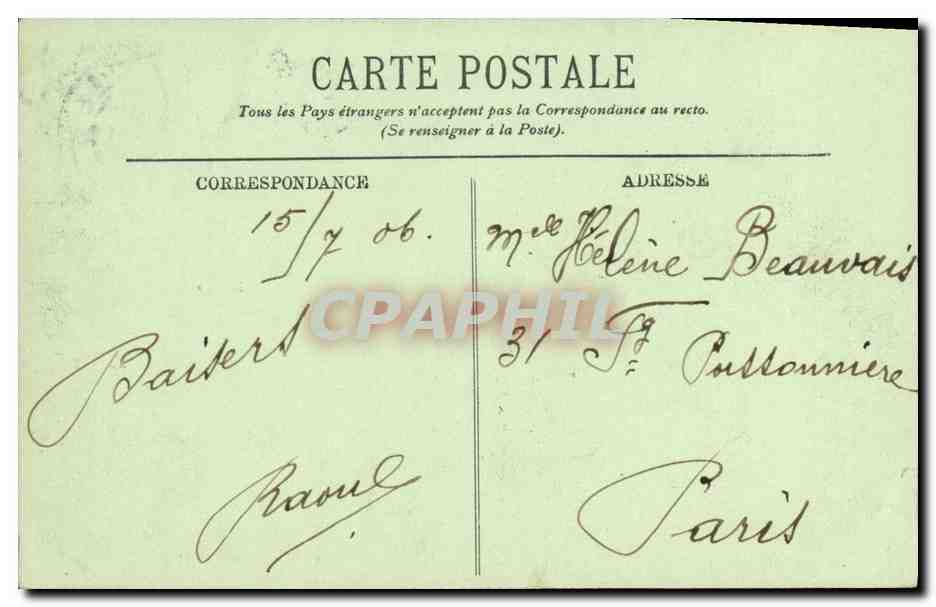 CARTE POSTALE
Tous les Pays étrangers n'acceptent pas la Correspondance au recto.
(Se renseigner à la Poste).
CORRESPONDANCE
15/7 06.
Baisers
Raoul
ADRESSE
Melle Hélène Beauvais
31 Fg Poissonnière
Paris
CPAPHIL